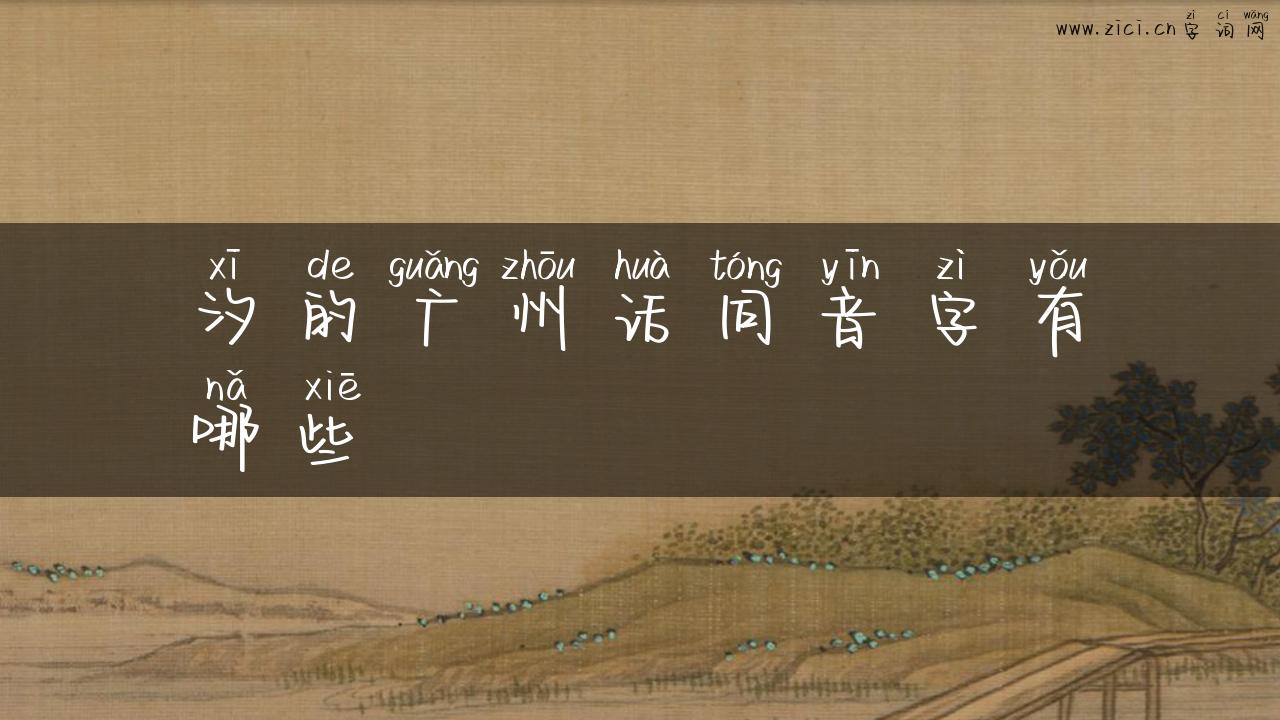 zì cí wǎng
www.zici.cn字词网
xī de guǎng zhōu huà tóng yīn zì yǒu
汐的广州话同音字有
nǎ xiē
哪些